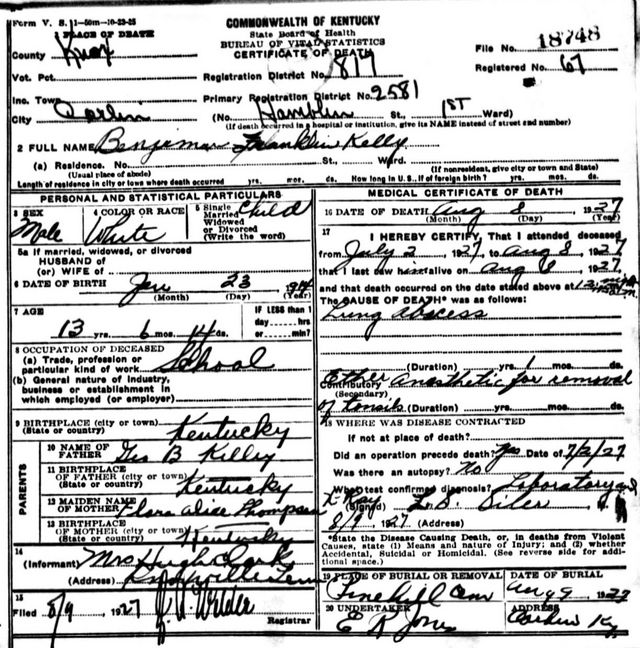 Form V. S. 1-50m-10-23-25
COMMONWEALTH OF KENTUCKY
PLACE OF DEATH
State Board of Health
BUREAU OF VITAL STATISTICS
CERTIFICATE OF DEATH
File No. 18748
County Knox
Registration District No. 879
Registered No. 67
Vot. Pct.
Inc. Town
Primary Registration District No. 2581
City Corbin
(No. Hamblin St., 1ST Ward)
(If death occurred in a hospital or institution, give its NAME instead of street and number)
2 FULL NAME Benjeman Franklin Kelly
(a) Residence. No. St., Ward.
(Usual place of abode) (If nonresident, give city or town and State)
Length of residence in city or town where death occurred yrs. mos. ds. How long in U. S., if of foreign birth? yrs. mos. ds.
PERSONAL AND STATISTICAL PARTICULARS
3 SEX Male
4 COLOR OR RACE White
5 Single Married Widowed or Divorced (Write the word) Child
5a If married, widowed, or divorced
HUSBAND of
(or) WIFE of
6 DATE OF BIRTH Jan 23 1914
(Month) (Day) (Year)
7 AGE 13 yrs. 6 mos. 14 ds.
IF LESS than 1 day hrs or min.?
8 OCCUPATION OF DECEASED
(a) Trade, profession or particular kind of work School
(b) General nature of industry, business or establishment in which employed (or employer)
9 BIRTHPLACE (city or town) Kentucky
(State or country)
PARENTS
10 NAME OF FATHER Geo B Kelly
11 BIRTHPLACE OF FATHER (city or town) Kentucky
(State or country)
12 MAIDEN NAME OF MOTHER Flora Alice Thompson
13 BIRTHPLACE OF MOTHER (city or town) Kentucky
(State or country)
14
(Informant) Mrs Hugh Clark
(Address) Knoxville Tenn
15
Filed 8/9 1927
Registrar
MEDICAL CERTIFICATE OF DEATH
16 DATE OF DEATH Aug 8 1927
(Month) (Day) (Year)
17
I HEREBY CERTIFY, That I attended deceased
from July 2 1927 to Aug 8 1927
that I last saw him alive on Aug 8 1927
and that death occurred on the date stated above at 12
The CAUSE OF DEATH* was as follows:
Lung abscess
(Duration) yrs. 1 mos. ds.
Contributory (Secondary) Ether Anasthetic for removal
of tonsils (Duration) yrs. mos. ds.
18 WHERE WAS DISEASE CONTRACTED
If not at place of death?
Did an operation precede death? Yes Date of 7/2/27
Was there an autopsy? No
What test confirmed diagnosis? Laboratory and
X Ray
(Signed)
8/9 1927 (Address)
*State the Disease Causing Death, or, in deaths from Violent Causes, state (1) Means and nature of Injury; and (2) whether Accidental, Suicidal or Homicidal. (See reverse side for additional space.)
19 PLACE OF BURIAL OR REMOVAL Pine hill Cem
DATE OF BURIAL Aug 9 1927
20 UNDERTAKER E R Jones
ADDRESS Corbin Ky